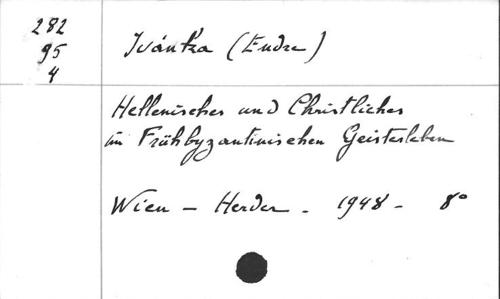 282
95
4
Ivánka (Endre)
Hellenisches und Christliches
im Frühbyzantinischen Geistesleben
Wien - Herder - 1948 - 8°